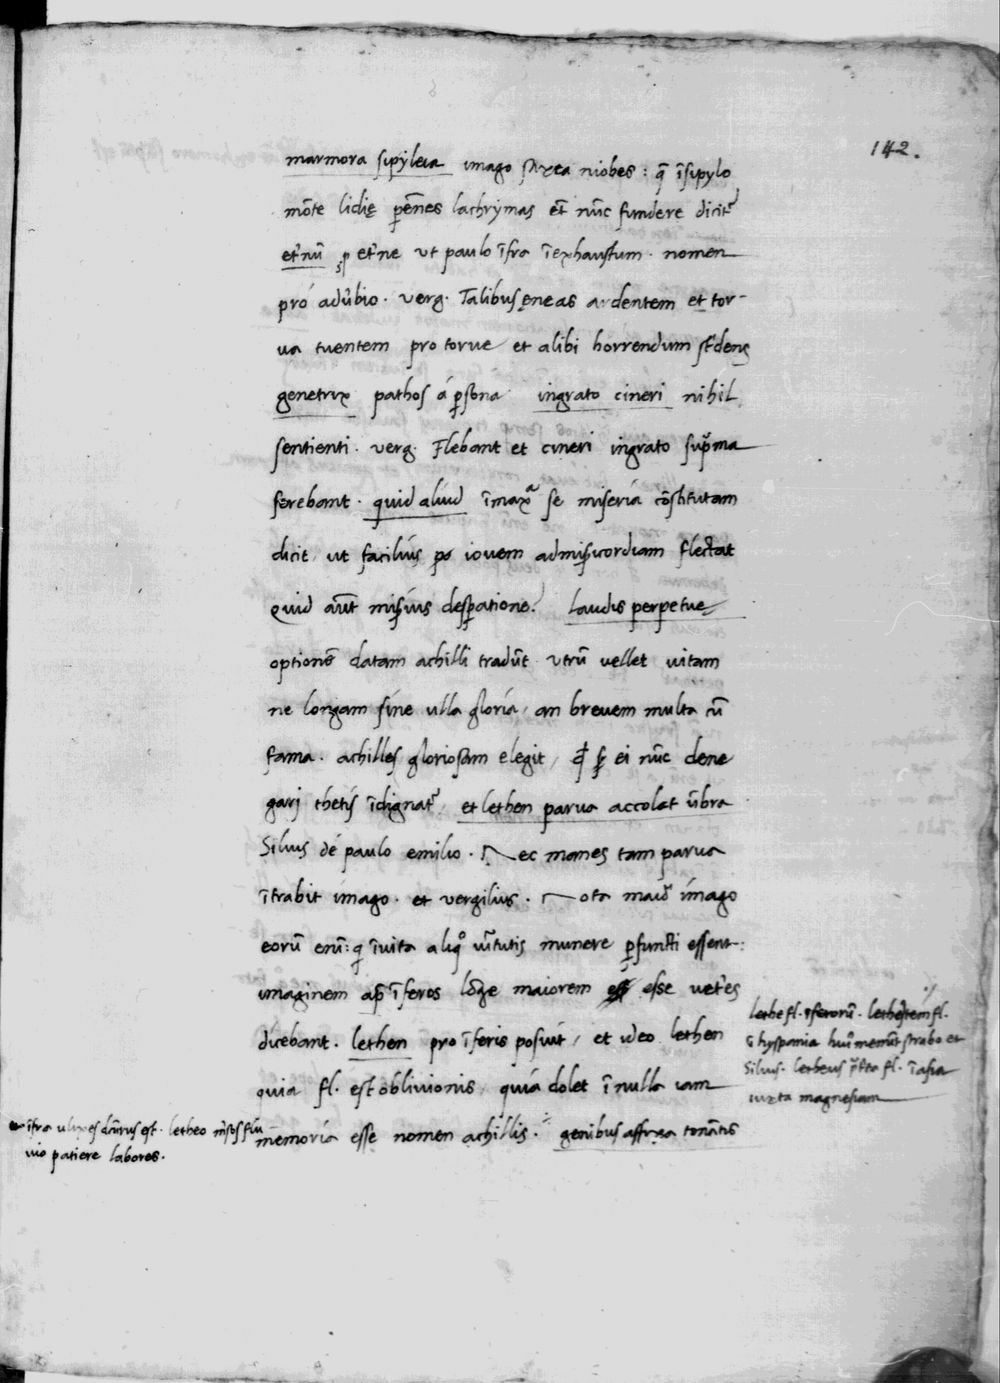 142.
marmora sipyleia imago saxea niobes : q̄ ī sipylo
mōte lidię p̱ēnes lachrymas et nūc fundere dicit᷑
et nū ꝓ et ne ut paulo īfra īexhaustum · nomen
pro adv̄bio · verg · Talibus ęneas ardentem et tor-
va tuentem pro torve et alibi horrendum strides
genetrix pathos á p̱sona ingrato cineri nihil
sentienti · verg · Flebant et cineri ingrato sup̄ma
ferebant · quid aliud ī maxᵃ se miseria cōstitutam
dicit, ut facilius iovem ad misericordiam flectat
Quid aūt misius desp̱atione? laudis perpetue
optionē datam achilli tradūt utrū vellet vitam
ne longam sine ulla gloria, an brevem multa cū
fama · achilles gloriosam elegit, ei nūc dene
gari thetis īdignat᷑ et lethen parva accolat ūbra
Silius de paulo emilio · Nec manes tam parva
ītrabit imago · et vergilius · Nota maior imago
eorū eni : q ī vita aliqᵒ v̄tutis munere p̱functi essent :
imaginem ap̄ īferos lōge maiorem esse veteres
dicebant · lethen pro īferis posuit, et ideo lethen
quia fl. est oblivionis, quia dolet ī nulla iam
memoria esse nomen achillis · genibus affixa tonātis
lethe fl. īferorū · lethes item fl.
ī hyspania huiꝰ meminit strabo et
Silius · letheus p̄terea fl. ī asia
iuxta magnesiam
īfra ulixes dicturus est · letheo mersos flu
vio patiere labores.